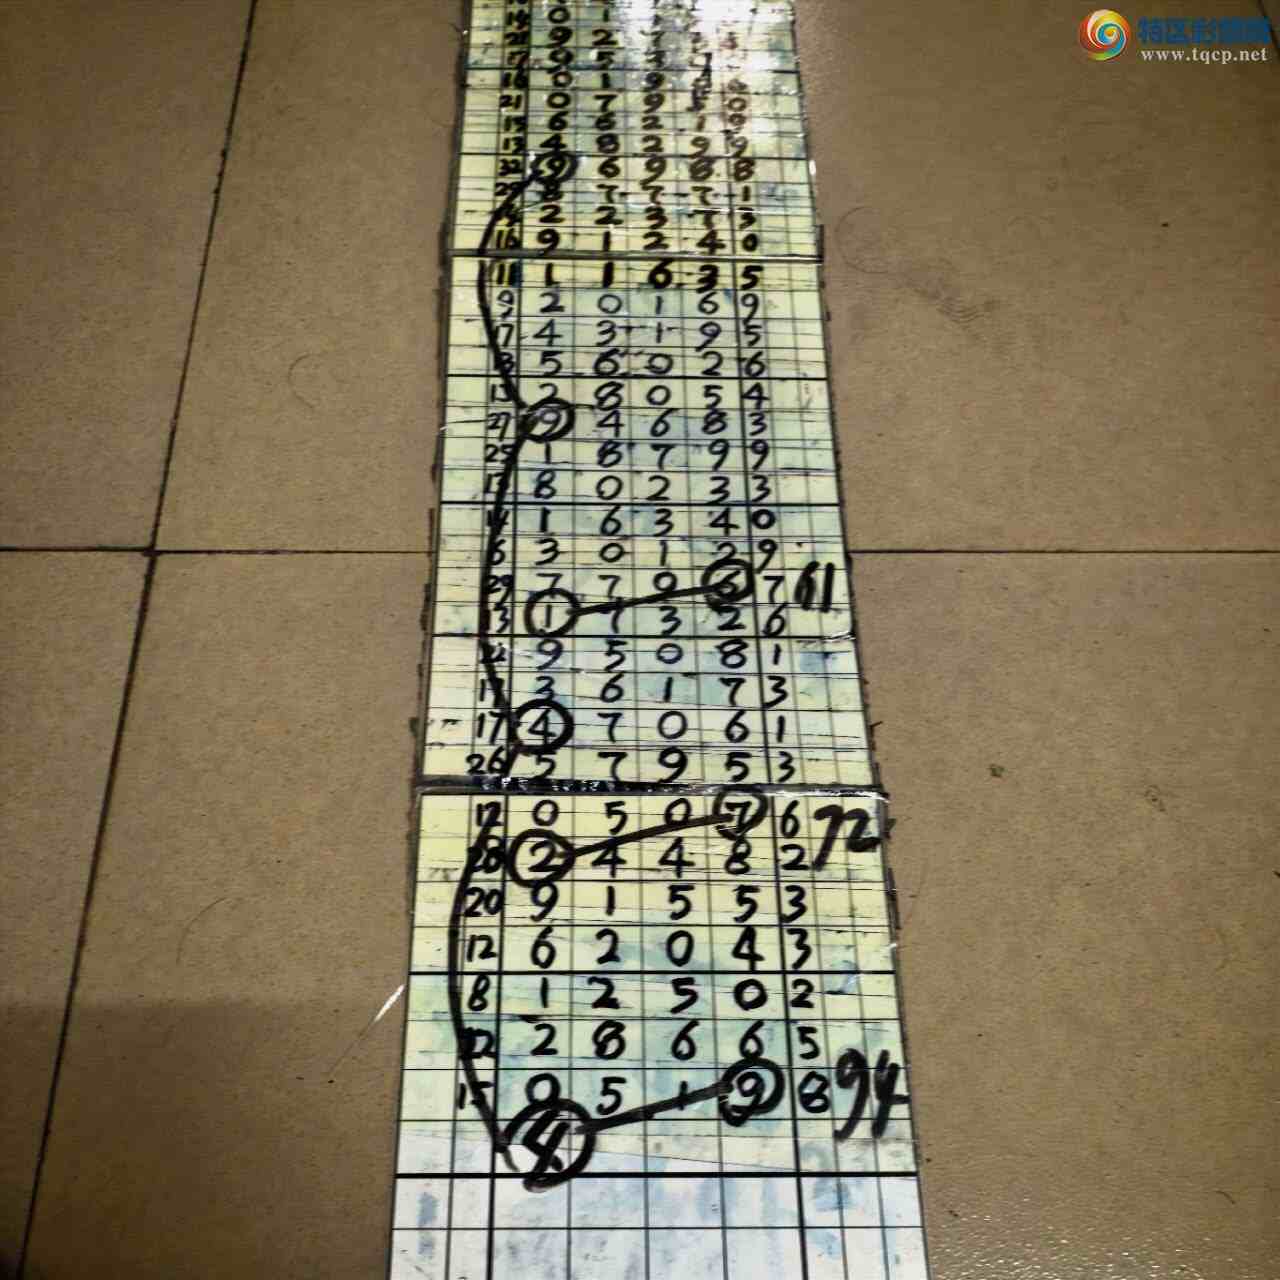 特区彩票网
www.tqcp.net
21 0 7 9 5 0
15 6 8 2 1 9
13 4 8 2 9 9
32 9 6 9 8 8
29 8 7 7 7 1
14 2 2 3 7 3
16 9 1 2 4 0
11 1 1 6 3 5
9 2 0 1 6 9
17 4 3 1 9 5
13 5 6 0 2 6
15 2 8 0 5 4
27 9 4 6 8 3
25 1 8 7 9 9
13 8 0 2 3 3
14 1 6 3 4 0
6 3 0 1 2 9
29 7 7 9 6 7 61
13 1 7 3 2 6
22 9 5 0 8 1
17 3 6 1 7 3
17 4 7 0 6 1
26 5 7 9 5 3
12 0 5 0 7 6 72
28 2 4 4 8 2
20 9 1 5 5 3
12 6 2 0 4 3
8 1 2 5 0 2
22 2 8 6 6 5
15 0 5 1 9 8 94
4